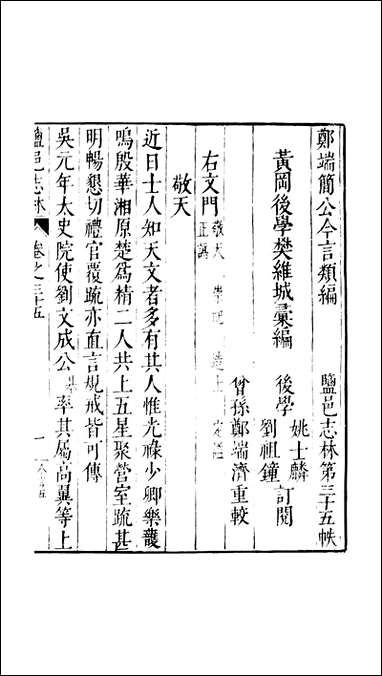 鄭端簡公今言類編　鹽邑志林第三十五帙
黃岡後學樊維城彙編　後學姚士麟
劉祖鐘訂閱
曾孫鄭端濟重較
右文門 敬天
正講
敬天
近日士人知天文者多有其人惟光祿少卿樂頀
鳴殷華湘原楚爲精二人共上五星聚營室疏甚
明暢懇切禮官覆疏亦直言規戒皆可傳
吳元年太史院使劉文成公基率其屬高翼等上
鹽邑志林 卷之三十五 一